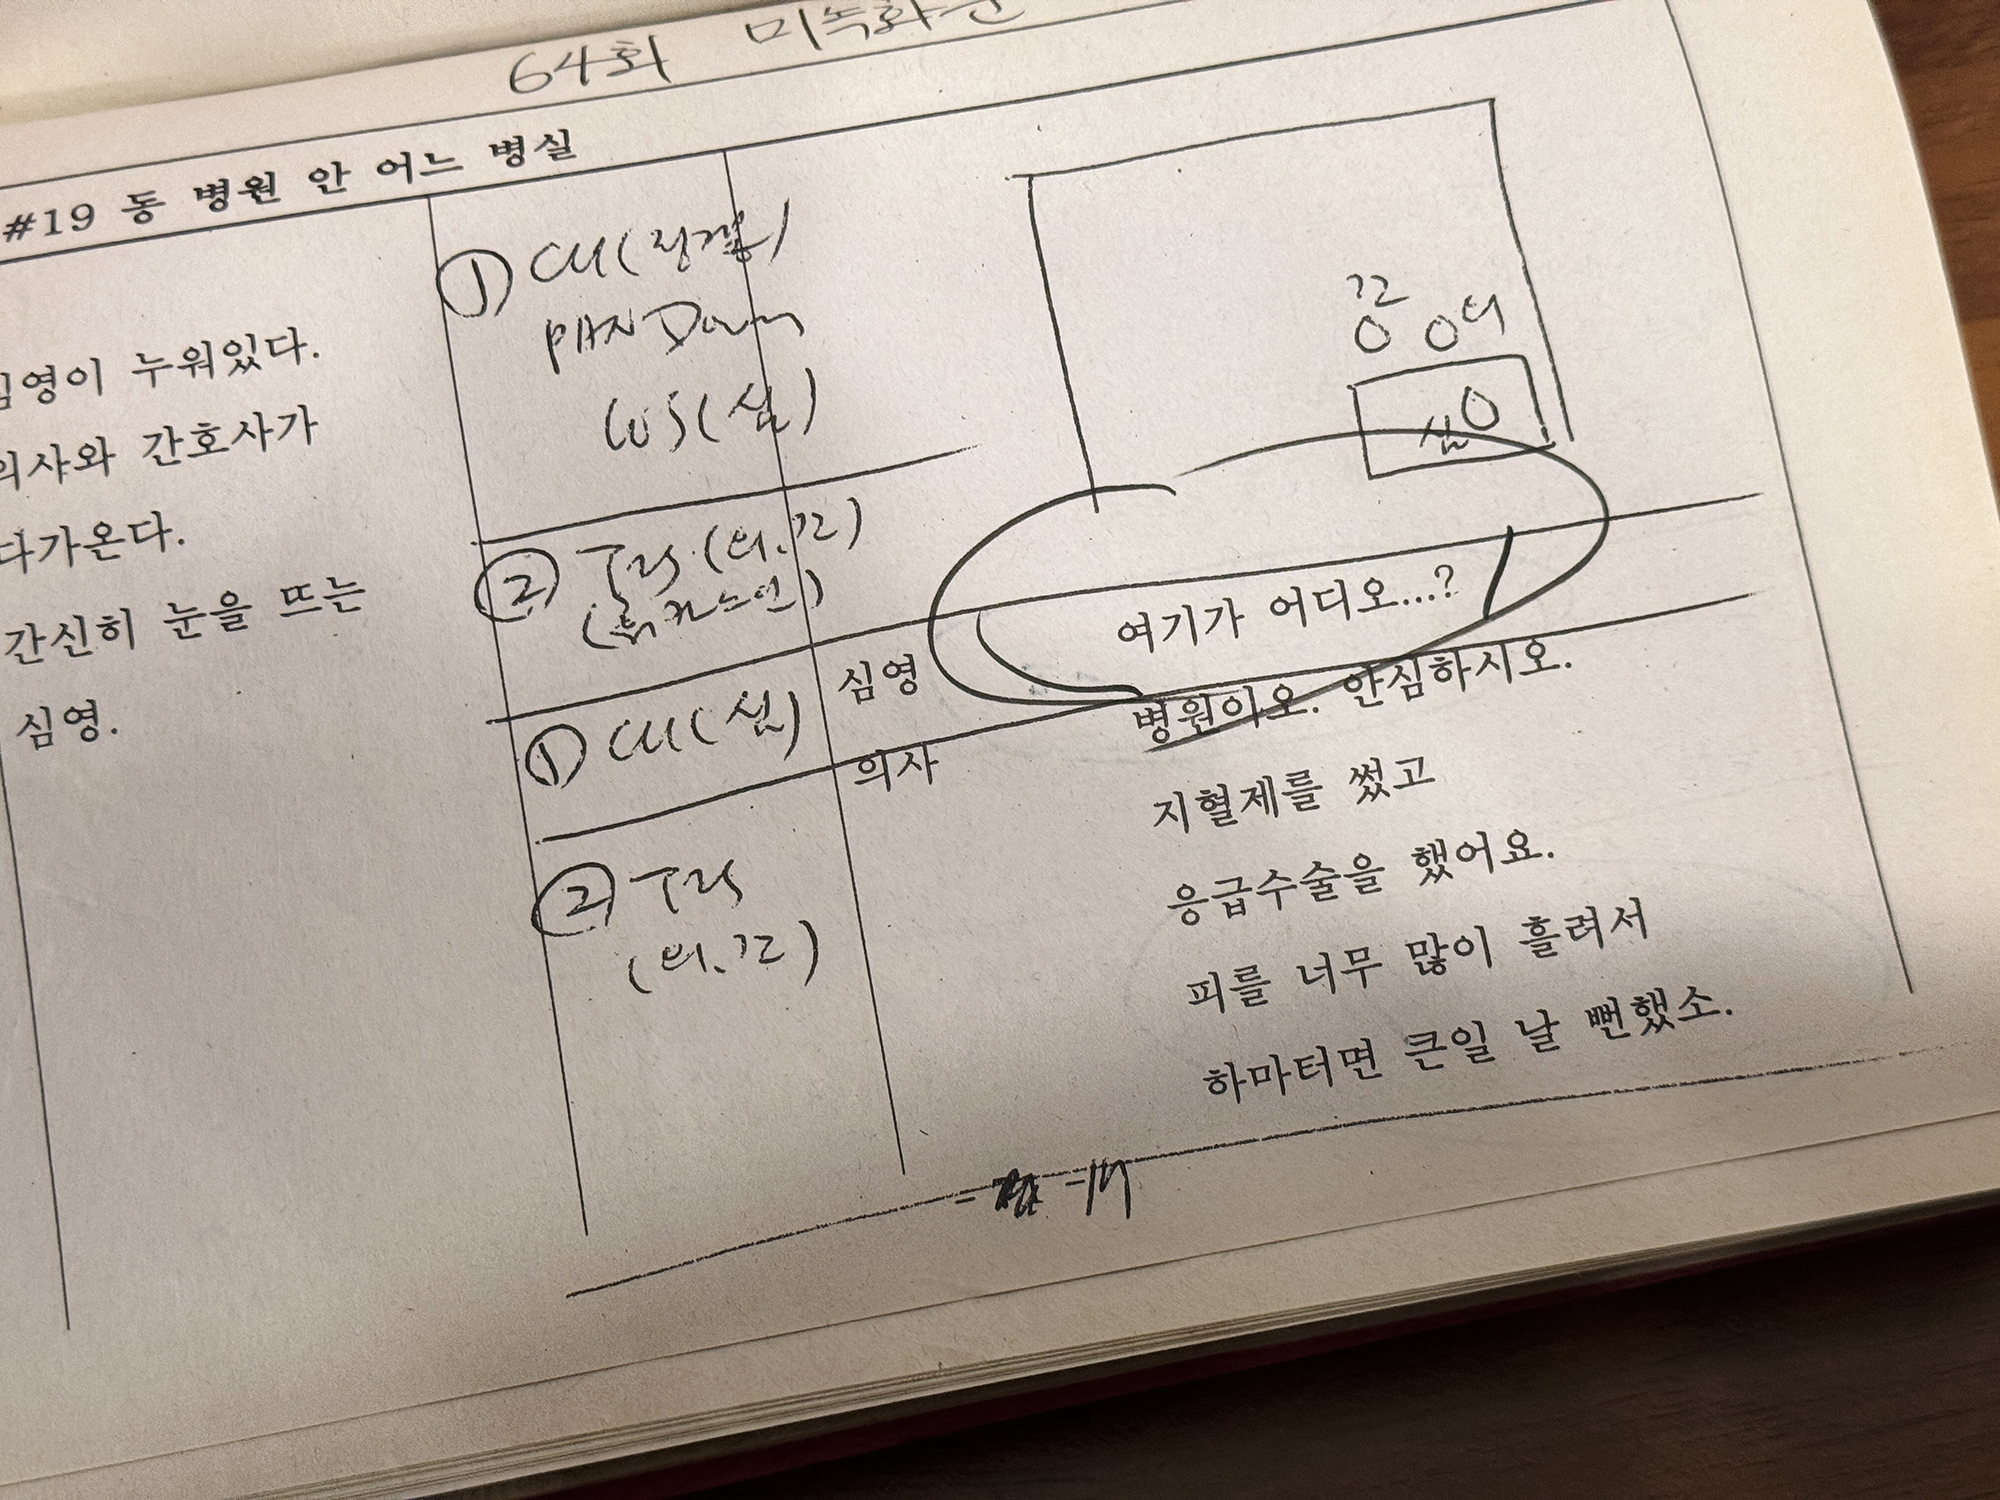 64회 미녹화분
#19 동 병원 안 어느 병실
심영이 누워있다.
의사와 간호사가
다가온다.
간신히 눈을 뜨는
심영.
① CU(링겔)
PAN Down
WS(심)
② 2S(의.간)
① CU(심)
② 2S
(의.간)
간
의
심
심영
여기가 어디오...?
의사
병원이오. 안심하시오.
지혈제를 썼고
응급수술을 했어요.
피를 너무 많이 흘려서
하마터면 큰일 날 뻔했소.